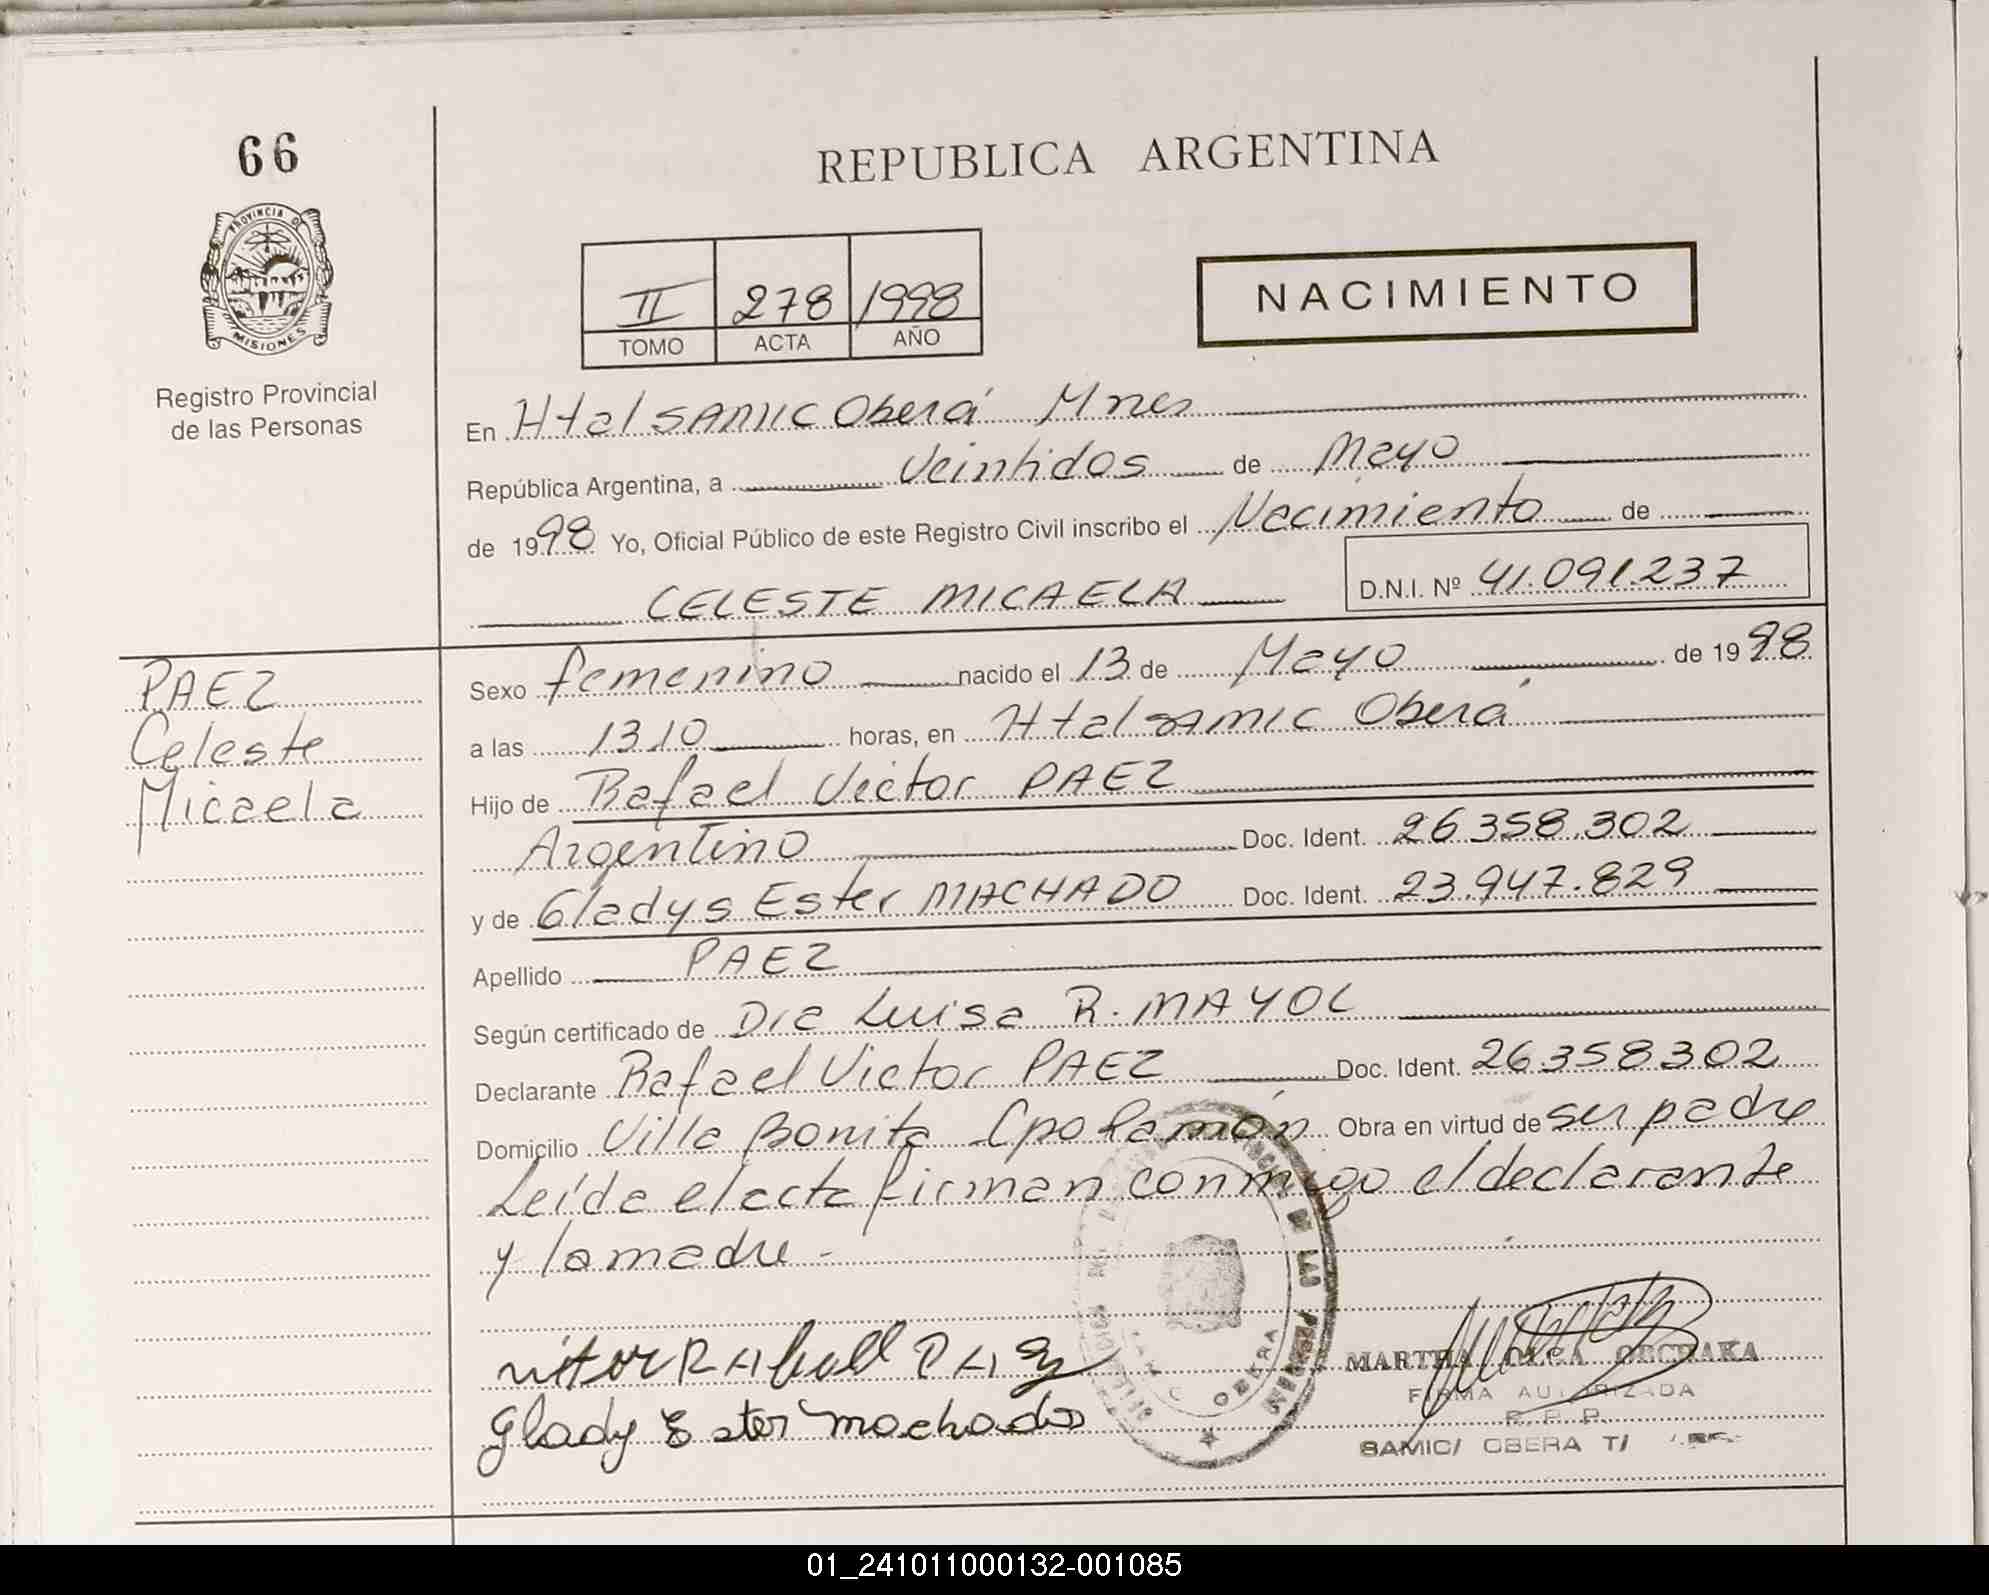 66
REPUBLICA ARGENTINA
PROVINCIA DE
MISIONES
Registro Provincial
de las Personas
II 278 1998
TOMO ACTA AÑO
NACIMIENTO
En Htal SAMIC Oberá Mnes
República Argentina, a Veintidos de Mayo
de 1998 Yo, Oficial Público de este Registro Civil inscribo el Nacimiento de
CELESTE MICAELA D.N.I. Nº 41.091.237
PAEZ
Celeste
Micaela
Sexo femenino nacido el 13 de Mayo de 1998
a las 13.10 horas, en Htal SAMIC Oberá
Hijo de Rafael Victor PAEZ
Argentino Doc. Ident. 26.358.302
y de Gladys Ester MACHADO Doc. Ident. 23.947.829
Apellido PAEZ
Según certificado de Dra Luisa R. MAYOL
Declarante Rafael Victor PAEZ Doc. Ident. 26358302
Domicilio Villa Bonita Cpo Ramón Obra en virtud de ser padre
Leída el acta firman conmigo el declarante
y la madre -
vitor RAfaell PAez
Glady Ester machado
DE LAS PERSONAS
OBERA
MARTHA OLGA
FIRMA AUTORIZADA
R. P. P.
SAMIC/ OBERA T/
01_241011000132-001085